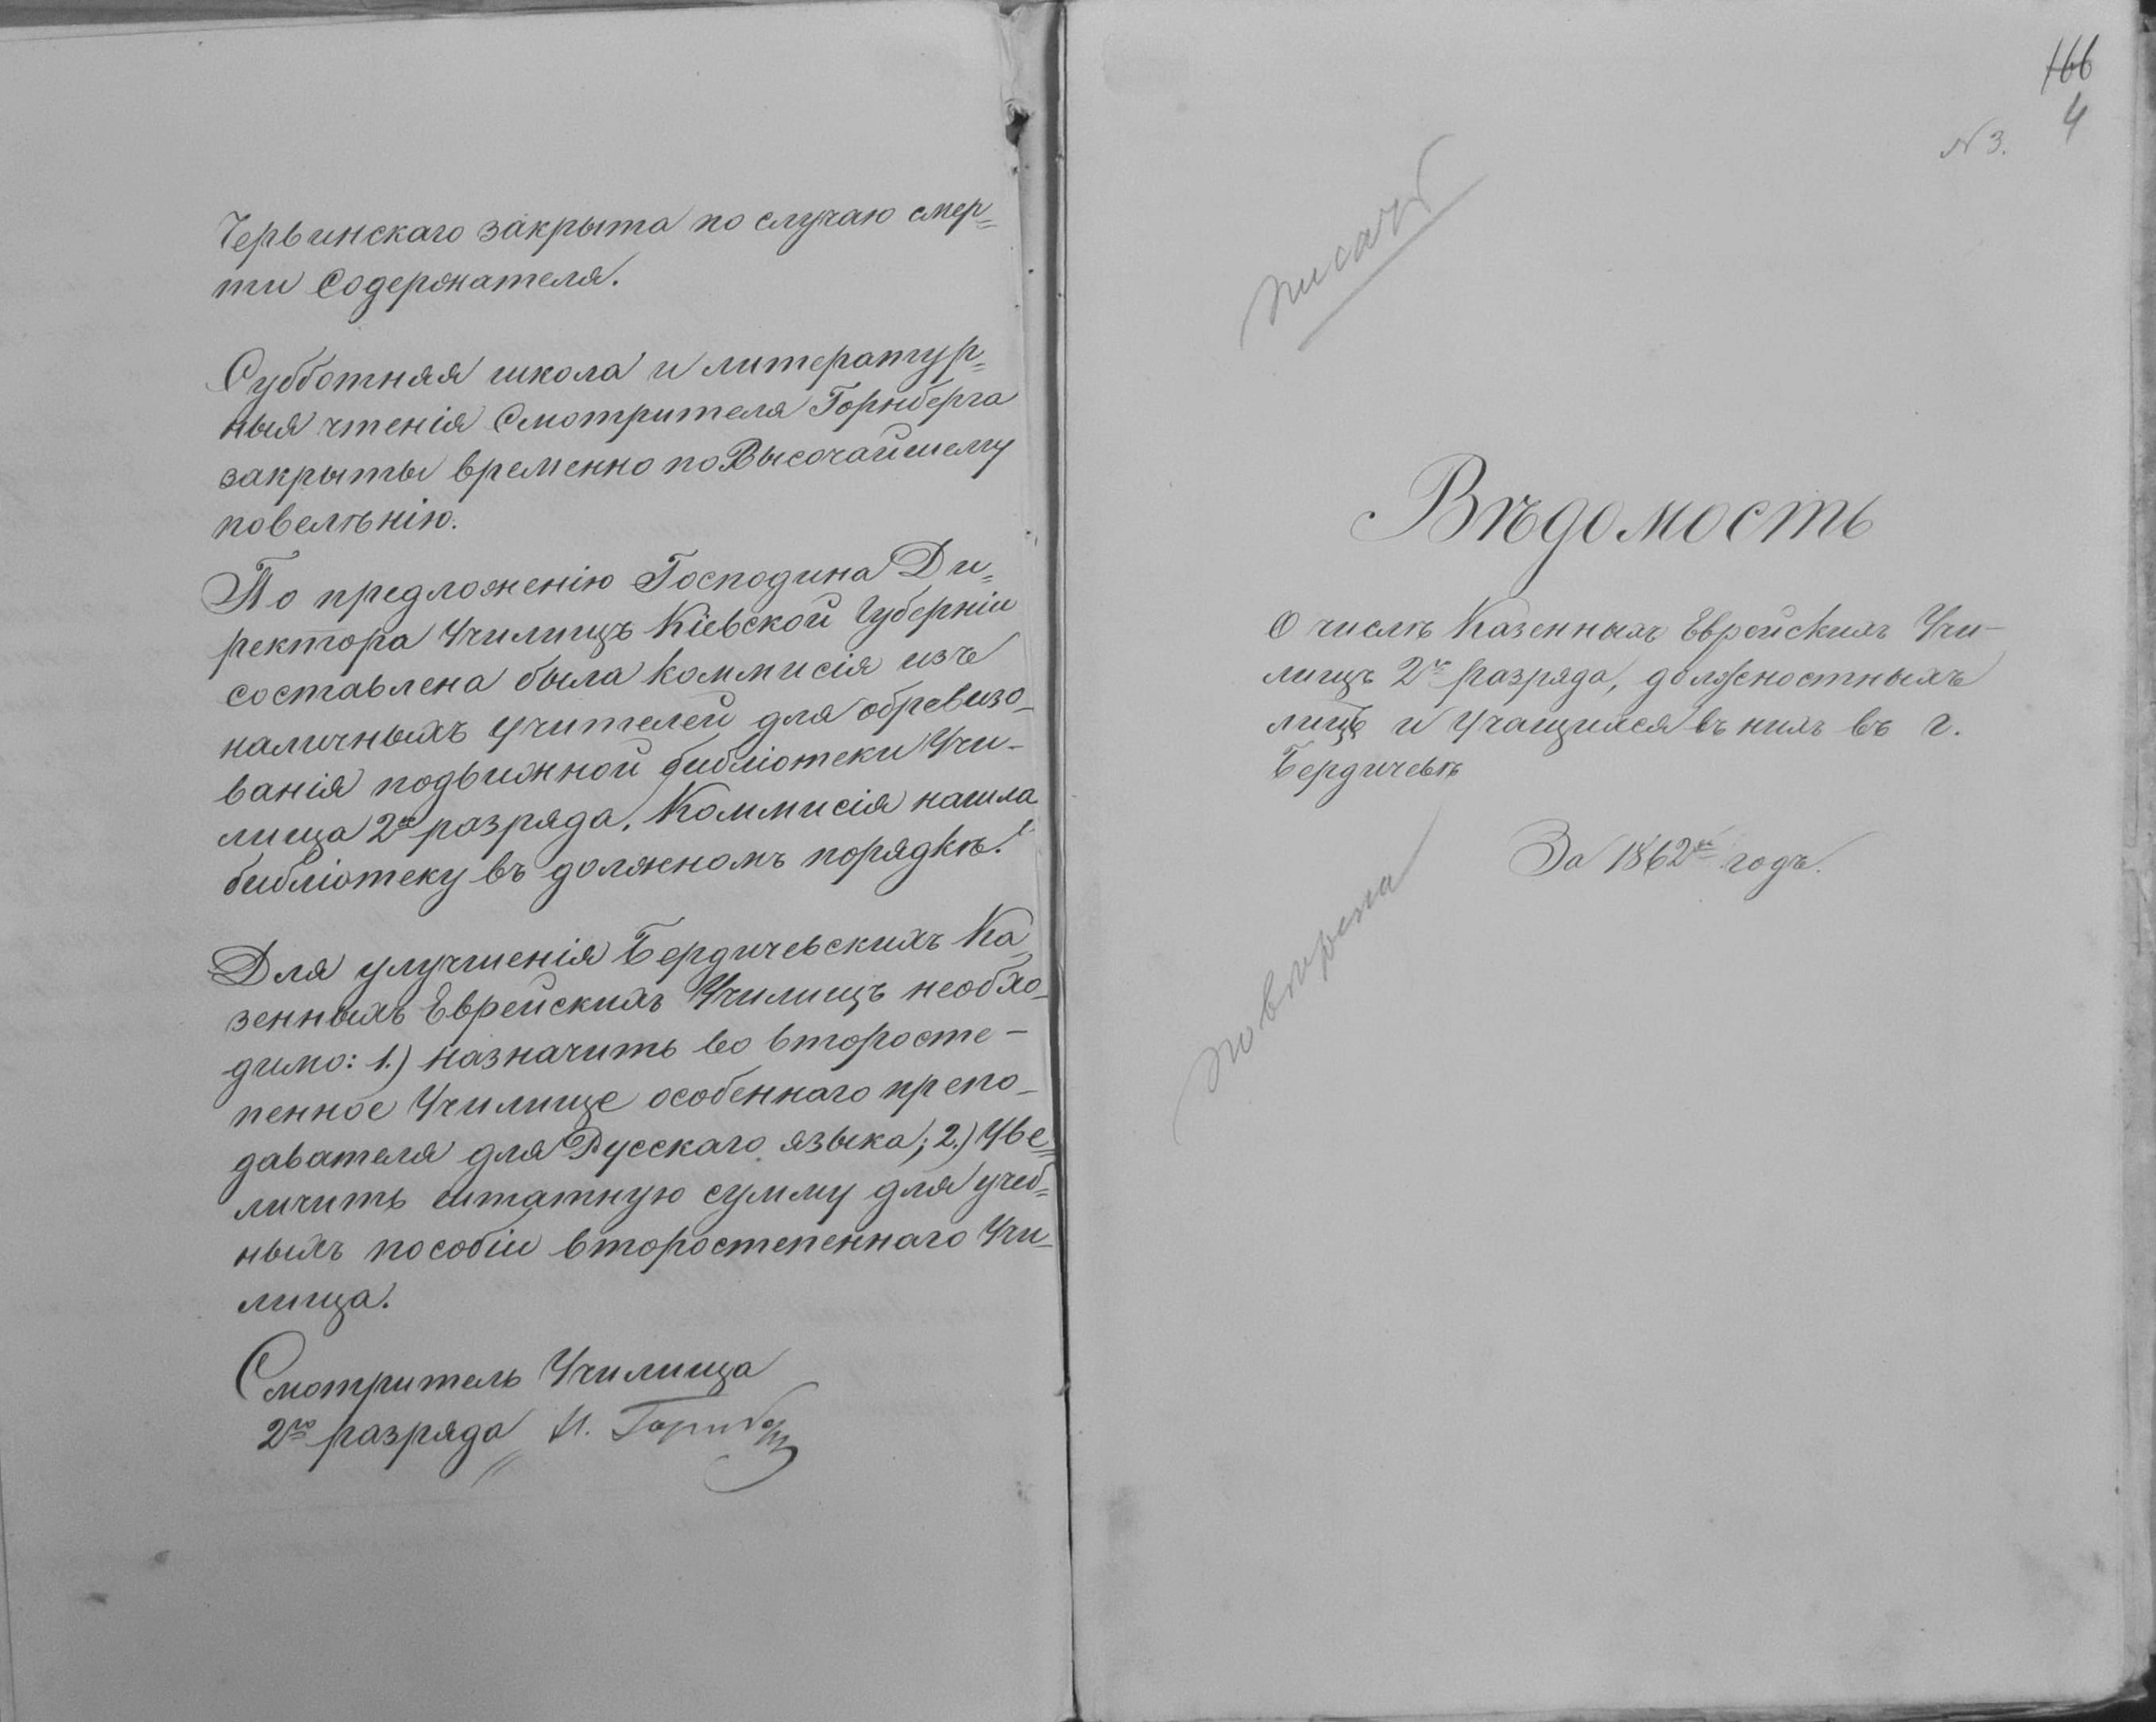 Червинскаго закрыта по случаю смер=
ти Содержателя.
Субботняя школа и литератур=
ныя чтенія Смотрителя Горнберга
закрыты временно по Высочайшему
повелѣнію.
По предложенію Господина Ди=
ректора Училищъ Кіевской Губерніи
составлена была Коммисія изъ
наличныхъ учителей для обревизо-
ванія подвижной библіотеки Учи-
лища 2го разряда. Коммисія нашла
библіотеку въ должномъ порядкѣ.
Для улучшенія Бердичевскихъ Ка-
зенныхъ Еврейскихъ Училищъ необхо-
димо: 1.) назначить во второсте-
пенное Училище особеннаго препо-
давателя для Русскаго языка; 2.) Уве=
личить штатную сумму для учеб=
ныхъ пособій второстепеннаго Учи-
лища.
Смотритель Училища
2го разряда И. Горнбергъ
166
4
N 3.
писать
Вѣдомость
О числѣ Казенныхъ Еврейскихъ Учи-
лищъ 2го разряда, должностныхъ
лицъ и учащихся въ нихъ въ г.
Бердичевѣ
За 1862й годъ.
повѣрена